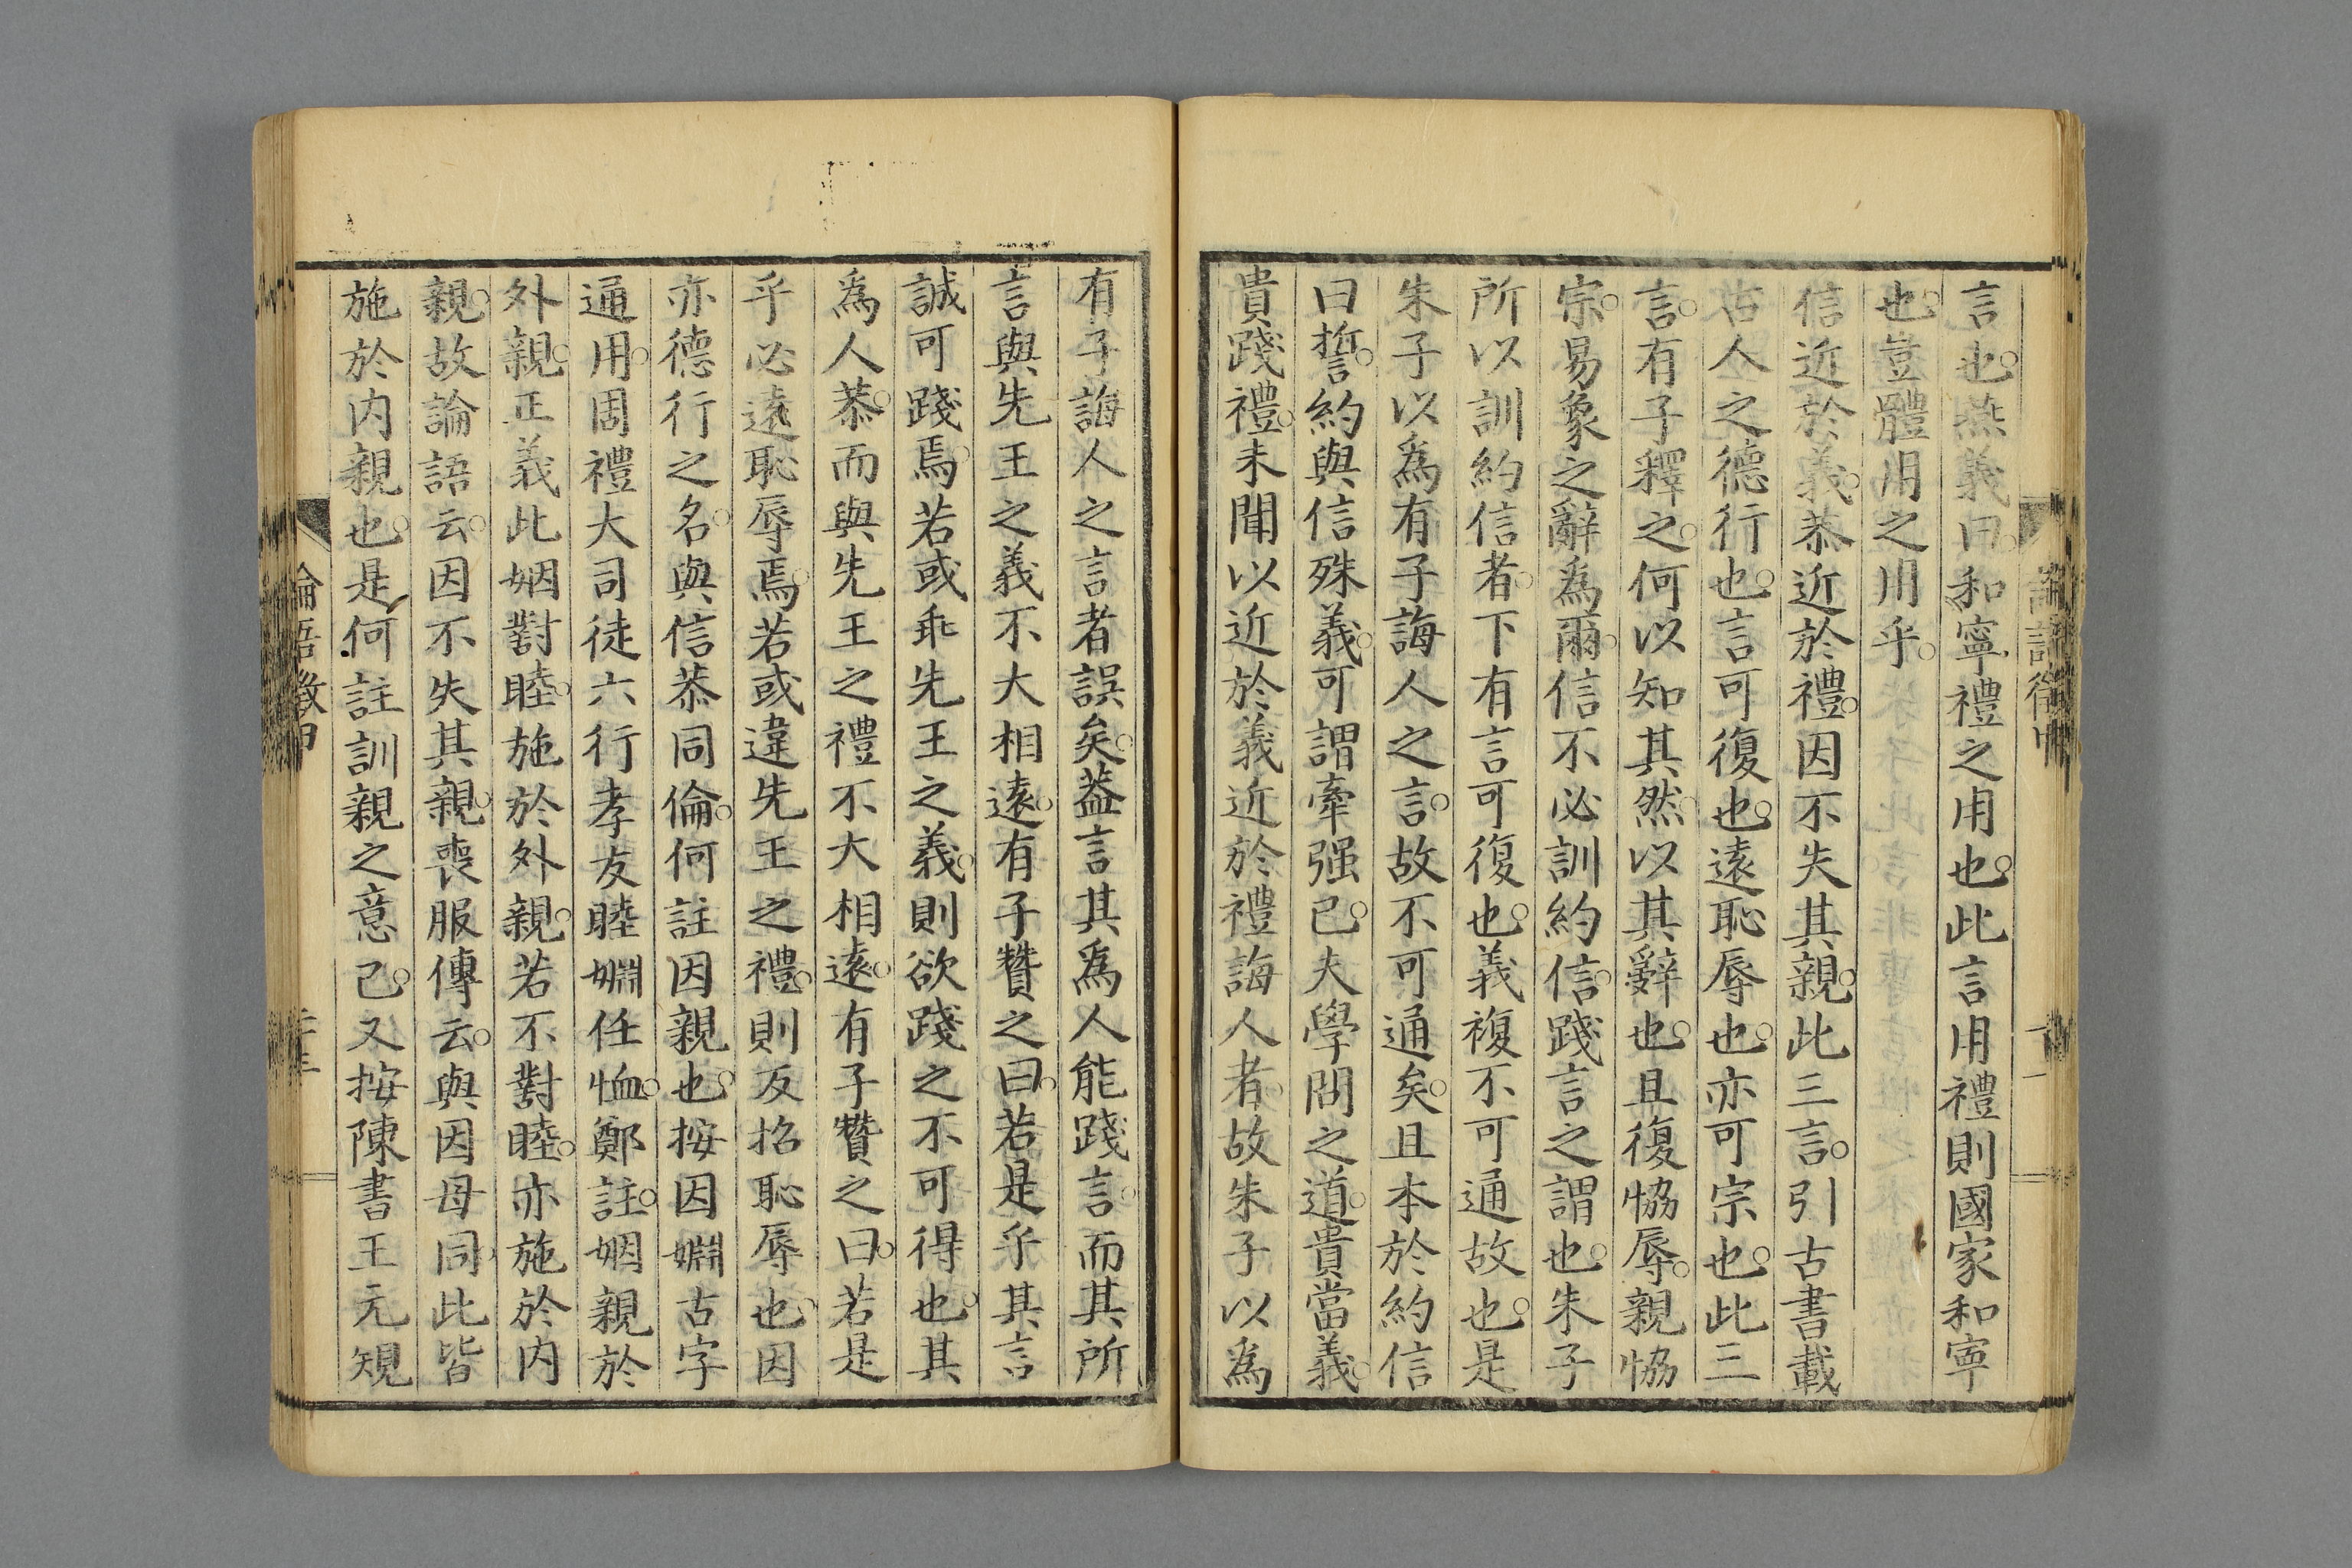 言也。燕義曰。和寧禮之用也。此言用禮則國家和寧
也。豈體用之用乎。
信近於義。恭近於禮。因不失其親。此三言。引古書載
古人之德行也。言可復也。遠恥辱也。亦可宗也。此三
言。有子釋之。何以知其然。以其辭也。且復恊辱。親恊
宗。易象之辭爲爾。信不必訓約信。踐言之謂也。朱子
所以訓約信者。下有言可復也。義複不可通故也。是
朱子以爲有子誨人之言。故不可通矣。且本於約信
曰誓。約與信殊義。可謂牽强已。夫學問之道。貴當義。
貴踐禮。未聞以近於義近於禮誨人者。故朱子以爲
有子誨人之言者誤矣。葢言其爲人能踐言。而其所
言與先王之義不大相遠。有子贊之曰。若是乎其言
誠可踐焉。若或乖先王之義。則欲踐之不可得也。其
爲人恭。而與先王之禮不大相遠。有子贊之曰。若是
乎必遠恥辱焉。若或違先王之禮。則反招恥辱也。因
亦德行之名。與信恭同倫。何註因親也。按因婣古字
通用。周禮大司徒六行孝友睦婣任恤。鄭註。姻親於
外親。正義此姻對睦。施於外親。若不對睦。亦施於內
親。故論語云。因不失其親。喪服傳云。與因母同。此皆
施於內親也。是何註訓親之意已。又按陳書王元規
論語徵甲